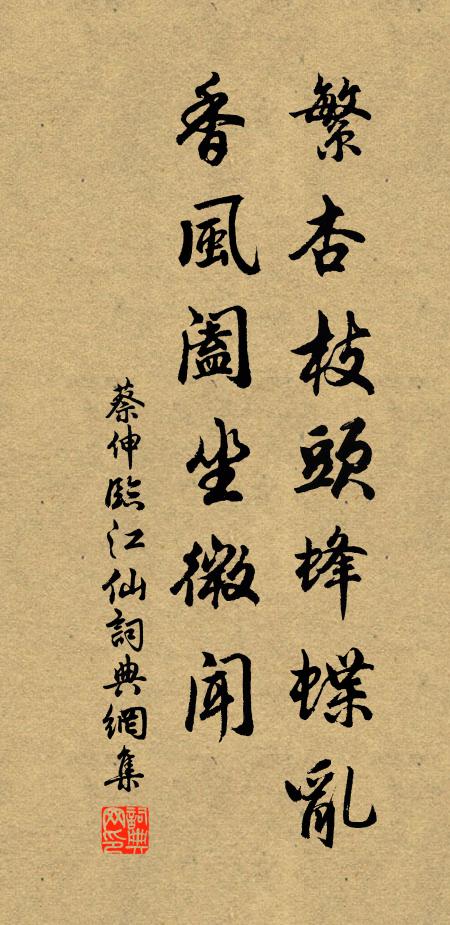 繁杏枝頭蜂蝶亂
香風闔坐微聞
蔡伸臨江仙詞典網集
詞典網印